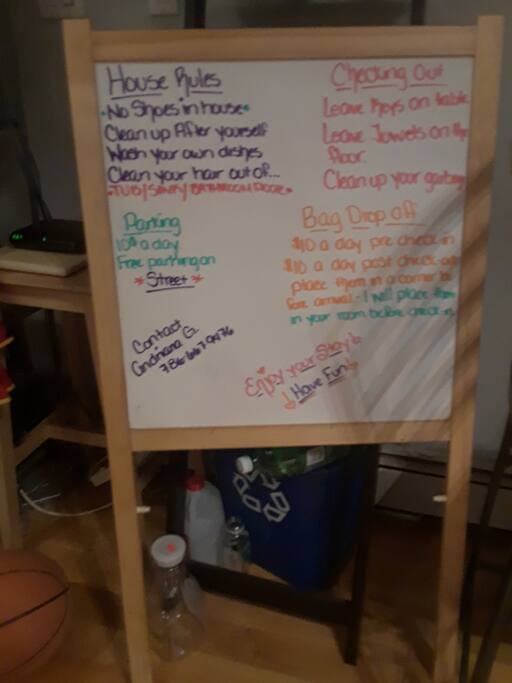 House Rules
No Shoes in house
Clean up After yourself
Wash your own dishes
Clean your hair out of...
TUB/SINK/BATHROOM FLOOR
Checking Out
Leave Keys on table
Leave Towels on the
floor.
Clean up your garbage
Parking
10$ a day
Free parking on
Street
Bag Drop off
$10 a day pre check-in
$10 a day post check-out
place them in a corner
fore arrival - I will place them
in your room before check-in
Contact
Andriana G.
Enjoy your Stay
Have Fun